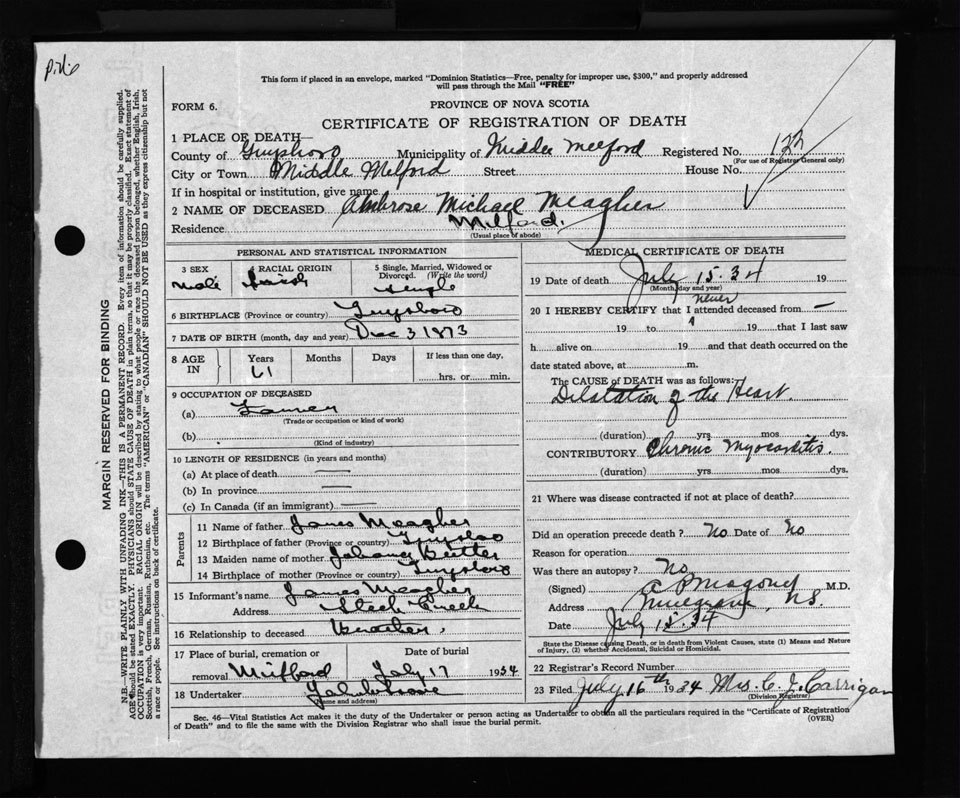 This form if placed in an envelope, marked "Dominion Statistics—Free, penalty for improper use, $300," and properly addressed
will pass through the Mail "FREE"
FORM 6.
PROVINCE OF NOVA SCOTIA
CERTIFICATE OF REGISTRATION OF DEATH
1 PLACE OF DEATH—
County of Guysboro Municipality of Middle Melford Registered No. 132
(For use of Registrar General only)
City or Town Middle Melford Street House No.
If in hospital or institution, give name
2 NAME OF DECEASED Ambrose Michael Meagher
Residence Milford.
(Usual place of abode)
PERSONAL AND STATISTICAL INFORMATION
3 SEX
male
4 RACIAL ORIGIN
Irish
5 Single, Married, Widowed or
Divorced. (Write the word)
Single
6 BIRTHPLACE (Province or country) Guysboro
7 DATE OF BIRTH (month, day and year) Dec 3 1873
8 AGE
IN
Years
61
Months
Days
If less than one day,
hrs. or min.
9 OCCUPATION OF DECEASED
(a) Farmer
(Trade or occupation or kind of work)
(b)
(Kind of industry)
10 LENGTH OF RESIDENCE (in years and months)
(a) At place of death —
(b) In province —
(c) In Canada (if an immigrant) —
Parents
11 Name of father James Meagher
12 Birthplace of father (Province or country) Guysboro
13 Maiden name of mother
14 Birthplace of mother (Province or country) Guysboro
15 Informant's name James Meagher
Address
16 Relationship to deceased Brother.
17 Place of burial, cremation or
removal Milford
Date of burial
July 17 1934
18 Undertaker
(Name and address)
MEDICAL CERTIFICATE OF DEATH
19 Date of death July 15. 34 19
(Month, day and year)
20 I HEREBY CERTIFY that I never attended deceased from —
19 to 19 that I last saw
h alive on 19 and that death occurred on the
date stated above, at m.
The CAUSE of DEATH was as follows:
Dilatation of the Heart.
(duration) yrs mos dys.
CONTRIBUTORY Chronic Myocarditis.
(duration) yrs mos dys.
21 Where was disease contracted if not at place of death?
Did an operation precede death? No Date of No
Reason for operation
Was there an autopsy? No
(Signed) M.D.
Address Mulgrave, N.S.
Date July 15 34
State the Disease causing Death, or in death from Violent Causes, state (1) Means and Nature
of Injury, (2) whether Accidental, Suicidal or Homicidal.
22 Registrar's Record Number
23 Filed July 16th 1934 Mrs. C. J. Carrigan
(Division Registrar)
Sec. 46—Vital Statistics Act makes it the duty of the Undertaker or person acting as Undertaker to obtain all the particulars required in the "Certificate of Registration
of Death" and to file the same with the Division Registrar who shall issue the burial permit.
(OVER)
MARGIN RESERVED FOR BINDING
N.B.—WRITE PLAINLY WITH UNFADING INK—THIS IS A PERMANENT RECORD. Every item of information should be carefully supplied.
AGE should be stated EXACTLY. PHYSICIANS should STATE CAUSE OF DEATH in plain terms, so that it may be properly classified. Exact statement of
OCCUPATION is very important. RACIAL ORIGIN will be described by stating to what people or race the deceased person belonged, whether English, Irish,
Scottish, French, German, Russian, Ruthenian, etc. The terms "AMERICAN" or "CANADIAN" SHOULD NOT BE USED as they express citizenship but not
a race or people. See instructions on back of certificate.